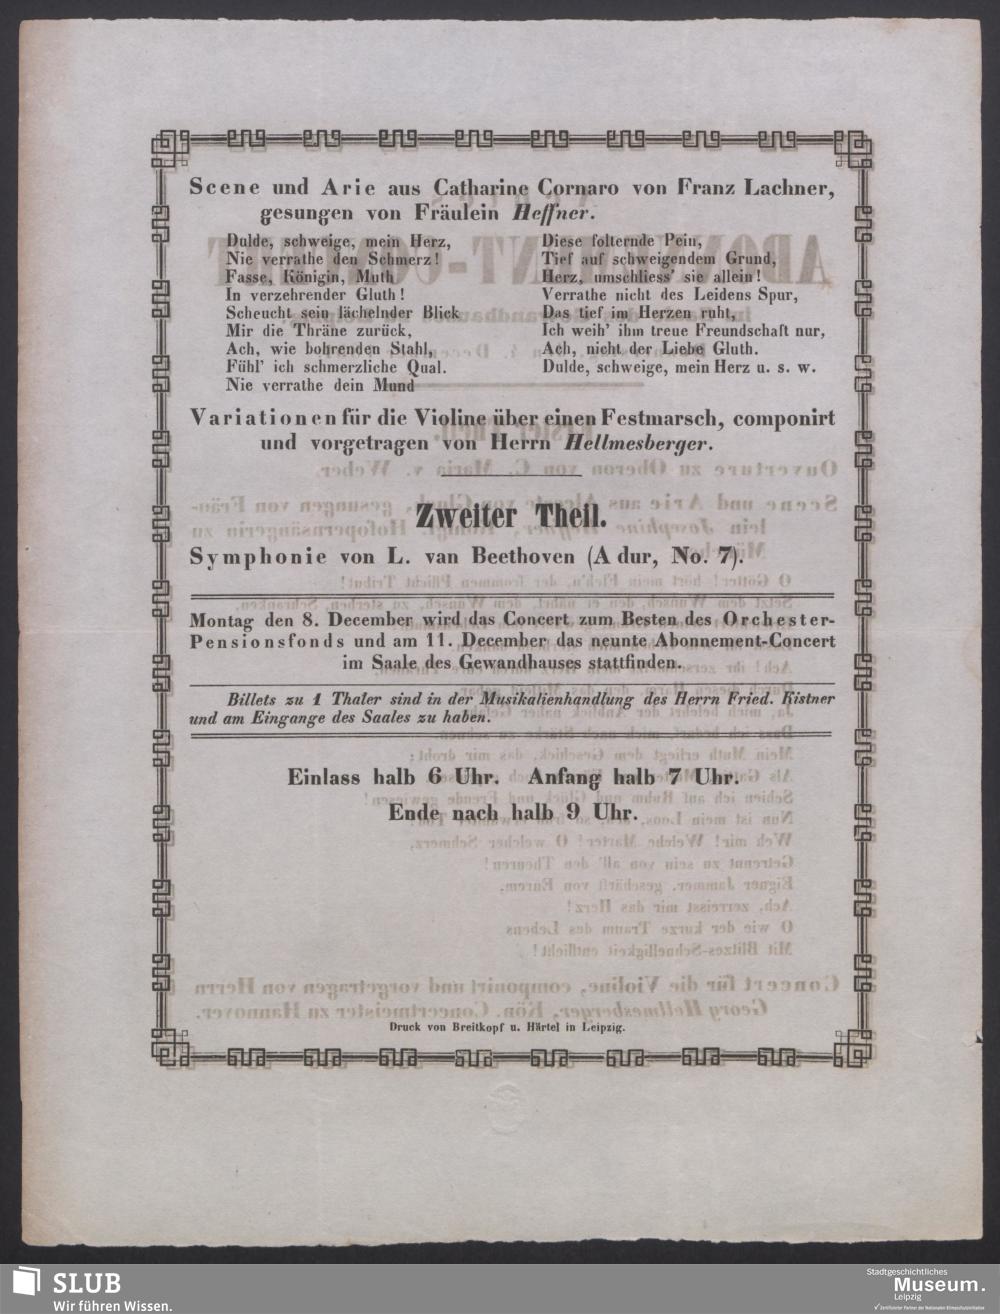 Scene und Arie aus Catharine Cornaro von Franz Lachner,
gesungen von Fräulein Heffner.
Dulde, schweige, mein Herz,
Nie verrathe den Schmerz!
Fasse, Königin, Muth
In verzehrender Gluth!
Scheucht sein lächelnder Blick
Mir die Thräne zurück,
Ach, wie bohrenden Stahl,
Fühl' ich schmerzliche Qual.
Nie verrathe dein Mund
Diese folternde Pein,
Tief auf schweigendem Grund,
Herz, umschliess' sie allein!
Verrathe nicht des Leidens Spur,
Das tief im Herzen ruht,
Ich weih' ihm treue Freundschaft nur,
Ach, nicht der Liebe Gluth.
Dulde, schweige, mein Herz u. s. w.
Variationen für die Violine über einen Festmarsch, componirt
und vorgetragen von Herrn Hellmesberger.
Zweiter Theil.
Symphonie von L. van Beethoven (A dur, No. 7).
Montag den 8. December wird das Concert zum Besten des Orchester-
Pensionsfonds und am 11. December das neunte Abonnement-Concert
im Saale des Gewandhauses stattfinden.
Billets zu 1 Thaler sind in der Musikalienhandlung des Herrn Fried. Kistner
und am Eingange des Saales zu haben.
Einlass halb 6 Uhr. Anfang halb 7 Uhr.
Ende nach halb 9 Uhr.
Druck von Breitkopf u. Härtel in Leipzig.
SLUB
Wir führen Wissen.
Stadtgeschichtliches
Museum.
Leipzig
Zertifizierter Partner der Nationalen Klimaschutzinitiative